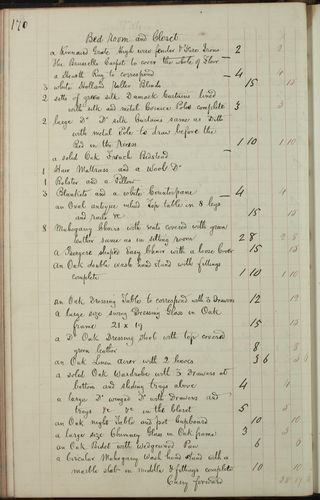 170
Bed Room and Closet
a Kinnaird Grate high wire fender & Fire Irons 2 2
The Brussells Carpet to cover the whole of Floor
a Hearth Rug to correspond 4 4
3 white Holland Roller Blinds 15 15
2 setts of green silk Damask Curtains lined
with silk and metal Cornice Poles complete 3 3
2 large Do Do silk Curtains same as Ditto
with metal Pole to draw before the
Bed in the Recess 1 10 1 10
a solid Oak French Bedstead
1 Hair Mattrass and a Wool Do
1 Bolster and a Pillow
3 Blankets and a white Counterpane 4 4
an Oval antique inlaid top table in 8 legs
and rails &c 15 15
8 Mahogany Chairs with seats covered with green
leather same as in sitting room 2 8 2 8
a Pergere shaped Easy Chair with a loose Cover 15 15
an Oak double wash hand stand with fittings
complete 1 10 1 10
an Oak Dressing Table to correspond with 3 Drawers 12 12
a large size swing Dressing Glass in Oak
frame 21 x 19 15 15
a Do Oak Dressing Stool with top covered
green leather 8 8
an Oak Linen airer with 2 leaves 3 6 3 6
a solid Oak Wardrobe with 3 Drawers at
bottom and sliding trays above 4 4
a large Do winged Do with Drawers and
trays &c &c in the Closet 5 5
an Oak night Table and pot Cupboard 10 10
a large size Chimney Glass in Oak frame 3 3
an Oak Bidet with Wedgewood Pan 6 6
a Circular Mahogany Wash hand stand with a
marble slab in middle & fittings complete 10 10
Carry forward